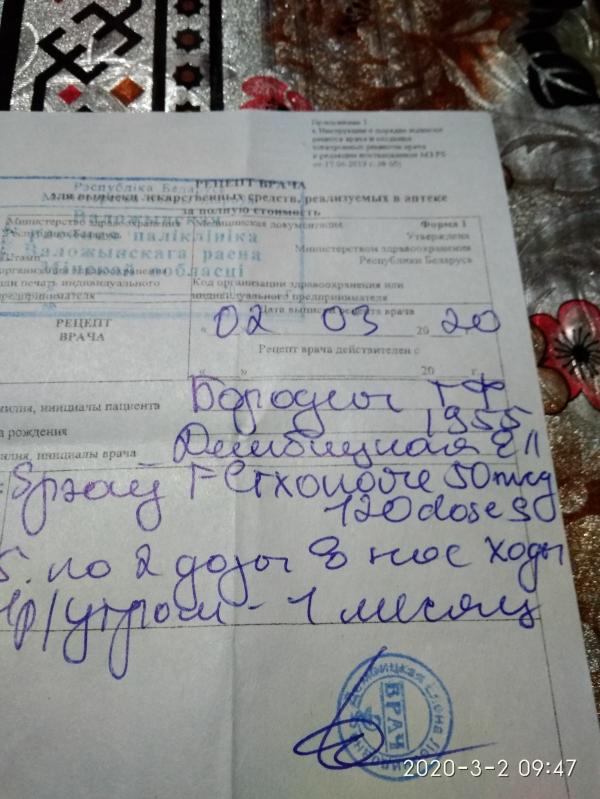 Приложение 1
к Инструкции о порядке выписки
рецепта врача и создания
электронных рецептов врача
в редакции постановления МЗ РБ
от 17.06.2019 г. № 60)
Рэспубліка Беларусь
РЕЦЕПТ ВРАЧА
для выписки лекарственных средств, реализуемых в аптеке
за полную стоимость
Валожынская
раённая паліклініка
Валожынскага раёна
Мінскай вобласці
Министерство здравоохранения
Республики Беларусь
Штамп
организации здравоохранения
или печать индивидуального
предпринимателя
Медицинская документация
Форма 1
Утверждена
Министерством здравоохранения
Республики Беларусь
Код организации здравоохранения или
индивидуального предпринимателя
РЕЦЕПТ
ВРАЧА
Дата выписки рецепта врача
« 02 03 20 20
Рецепт врача действителен с
« » 20 г.
милия, инициалы пациента Бородич Т Ф
а рождения 1955
алия, инициалы врача Дембицкая
50 mcg
120 doses
по 2 дозы в нос ходы
1р/утром - 1 месяц
ВРАЧ
2020-3-2 09:47